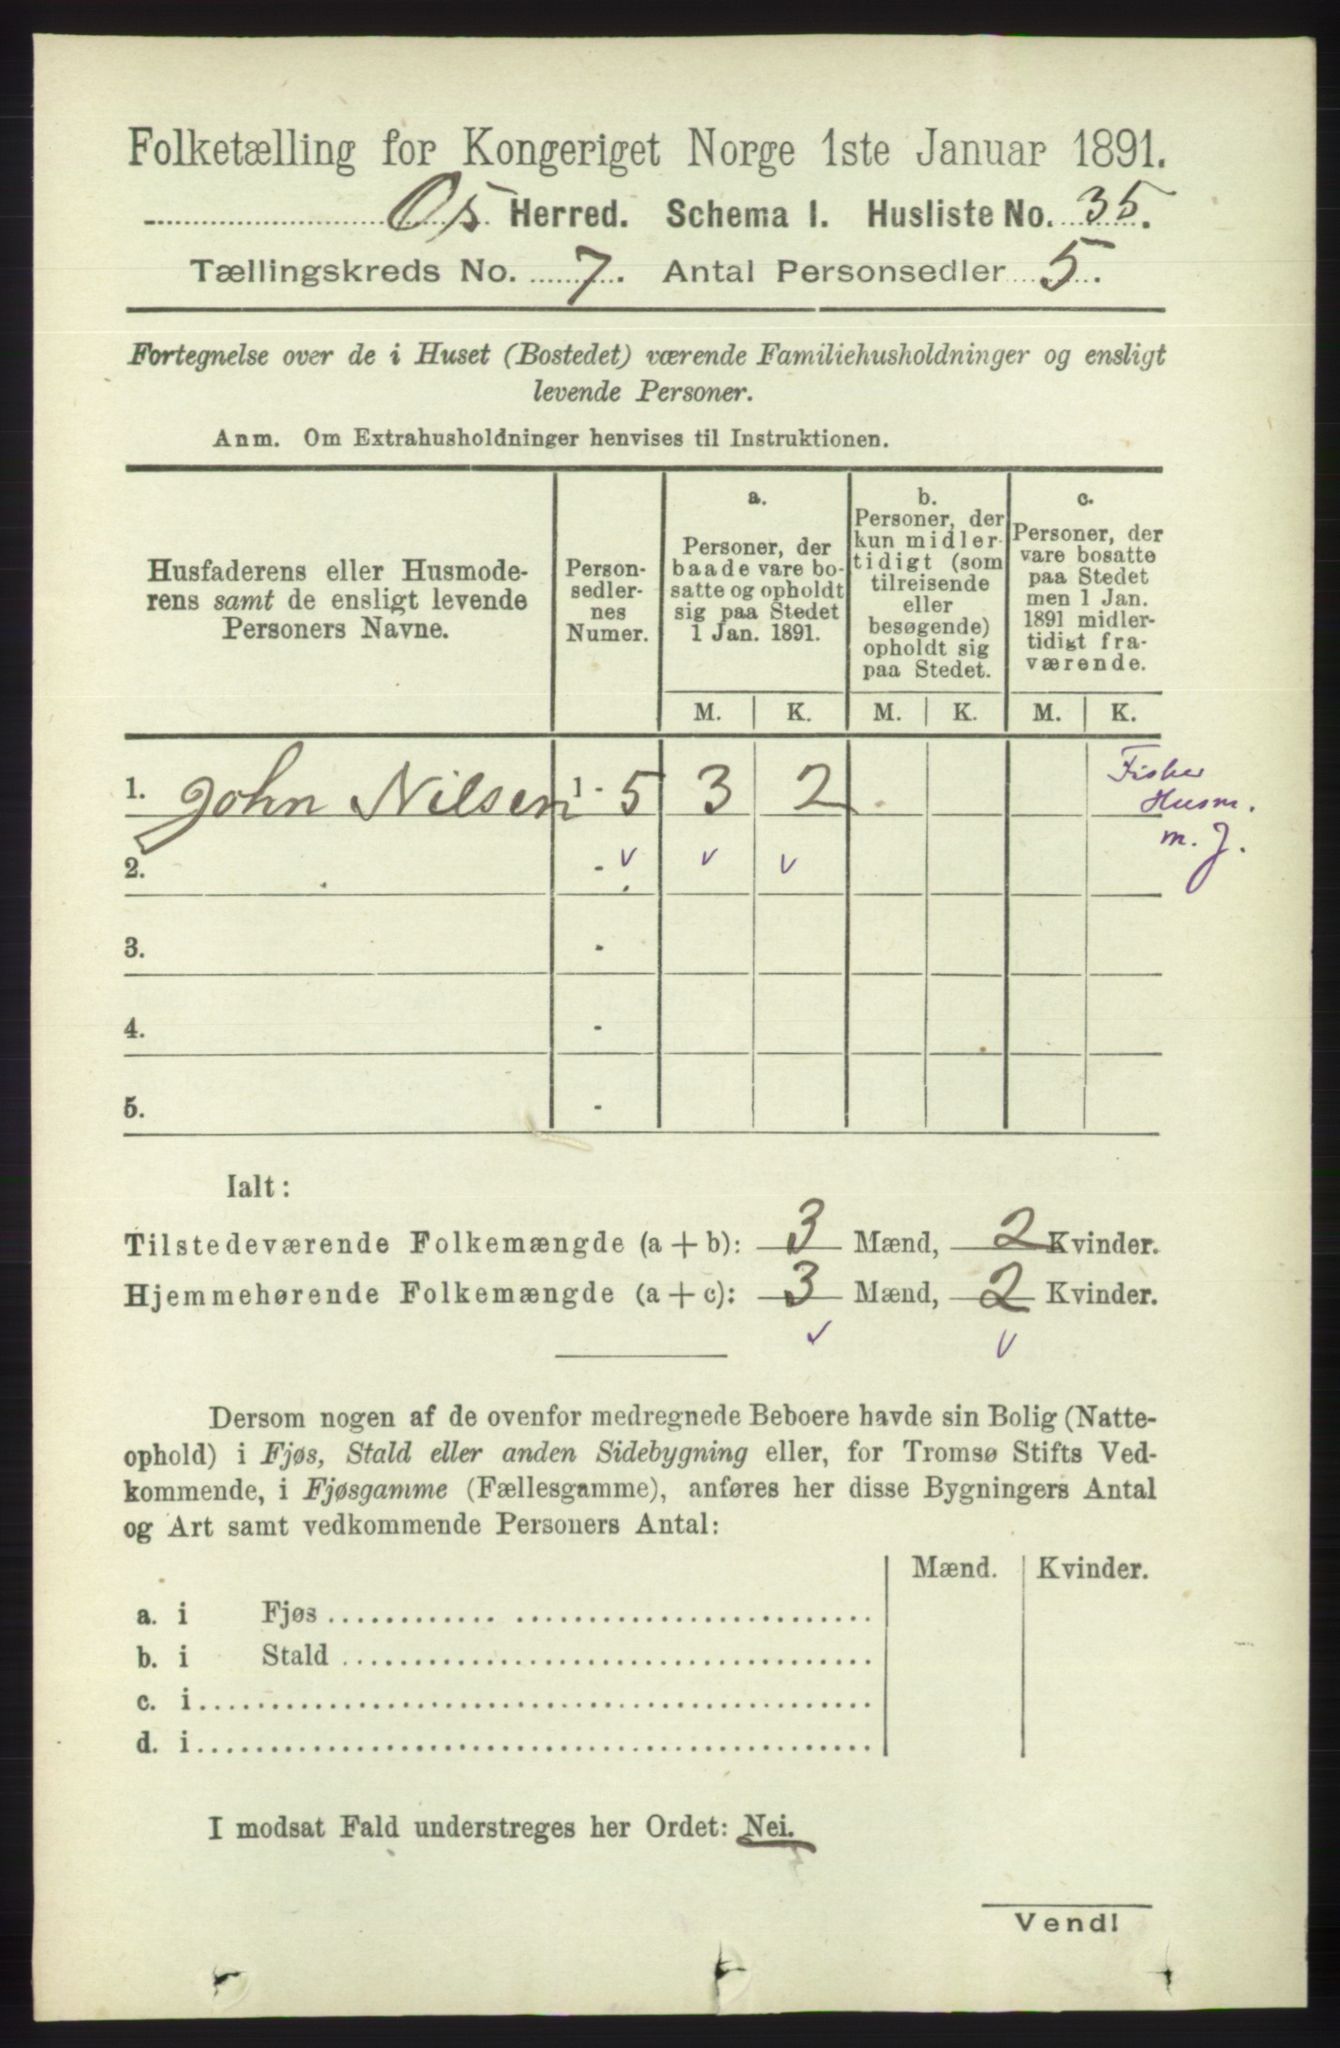 Folketælling for Kongeriget Norge 1ste Januar 1891.
Os Herred. Schema I. Husliste No. 35.
Tællingskreds No. 7. Antal Personsedler 5.
Fortegnelse over de i Huset (Bostedet) værende Familiehusholdninger og ensligt
levende Personer.
Anm. Om Extrahusholdninger henvises til Instruktionen.
Husfaderens eller Husmode-
rens samt de ensligt levende
Personers Navne.
Person-
sedler-
nes
Numer.
a.
Personer, der
baade vare bo-
satte og opholdt
sig paa Stedet
1 Jan. 1891.
b.
Personer, der
kun midler-
tidigt (som
tilreisende
eller
besøgende)
opholdt sig
paa Stedet.
c.
Personer, der
vare bosatte
paa Stedet
men 1 Jan.
1891 midler-
tidigt fra-
værende.
M. K. M. K. M. K.
1. John Nilsen 1 - 5 3 2
Fisker
Husm.
m. J.
2. -
3. -
4. -
5. -
Ialt:
Tilstedeværende Folkemængde (a + b): 3 Mænd, 2 Kvinder.
Hjemmehørende Folkemængde (a + c): 3 Mænd, 2 Kvinder.
Dersom nogen af de ovenfor medregnede Beboere havde sin Bolig (Natte-
ophold) i Fjøs, Stald eller anden Sidebygning eller, for Tromsø Stifts Ved-
kommende, i Fjøsgamme (Fællesgamme), anføres her disse Bygningers Antal
og Art samt vedkommende Personers Antal:
Mænd. Kvinder.
a. i Fjøs
b. i Stald
c. i
d. i
I modsat Fald understreges her Ordet: Nei.
Vend!